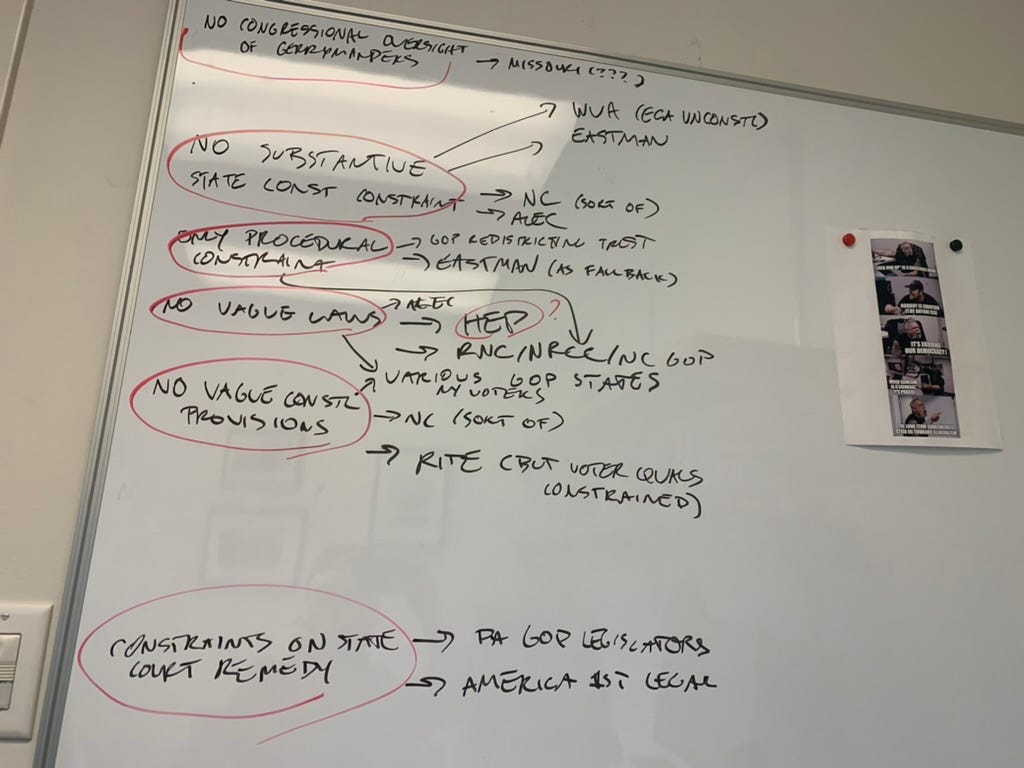 NO CONGRESSIONAL OVERSIGHT
OF GERRYMANDERS → MISSOURI (???)
WVA (ECA UNCONSTL)
EASTMAN
NO SUBSTANTIVE
STATE CONST CONSTRAINT
→ NC (SORT OF)
→ ALEC
ONLY PROCEDURAL
CONSTRAINT
→ GOP REDISTRICTING TRUST
→ EASTMAN (AS FALLBACK)
NO VAGUE LAWS
→ ALEC
→ HEP ?
→ RNC/NRCC/NC GOP
VARIOUS GOP STATES
NY VOTERS
NO VAGUE CONSTL
PROVISIONS
→ NC (SORT OF)
→ RITE (BUT VOTER QUALS
CONSTRAINED)
CONSTRAINTS ON STATE
COURT REMEDY
→ PA GOP LEGISLATORS
→ AMERICA 1ST LEGAL
IT'S ERODING
OUR DEMOCRACY!